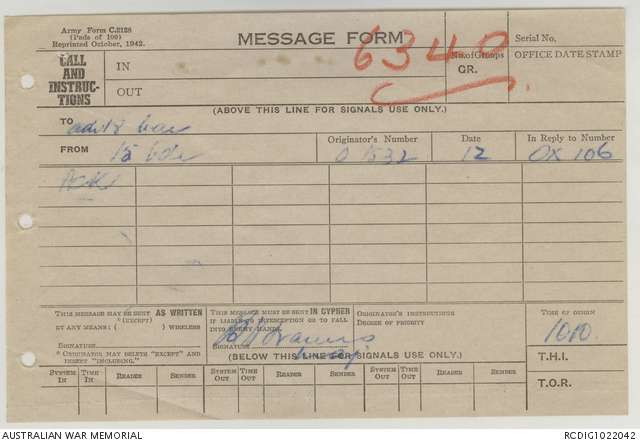 Army Form C.2128
(Pads of 100)
Reprinted October, 1942.
MESSAGE FORM
6340
Serial No.
CALL AND INSTRUC-TIONS
IN
OUT
No. of Groups
GR.
OFFICE DATE STAMP
(ABOVE THIS LINE FOR SIGNALS USE ONLY.)
TO
FROM 15 bde
Originator's Number
O 1532
Date
12
In Reply to Number
OX 106
ACK
THIS MESSAGE MAY BE SENT AS WRITTEN
(EXCEPT)
BY ANY MEANS: ( ) WIRELESS
SIGNATURE
* ORIGINATOR MAY DELETE "EXCEPT" AND INSERT "INCLUDING."
THIS MESSAGE MUST BE SENT IN CYPHER
IF LIABLE TO INTERCEPTION OR TO FALL INTO ENEMY HANDS.
SIGNATURE
ORIGINATOR'S INSTRUCTIONS
DEGREE OF PRIORITY
TIME OF ORIGIN
1010
(BELOW THIS LINE FOR SIGNALS USE ONLY.)
T.H.I.
SYSTEM IN TIME IN READER SENDER SYSTEM OUT TIME OUT READER SENDER SYSTEM OUT TIME OUT READER SENDER
T.O.R.
AUSTRALIAN WAR MEMORIAL
RCDIG1022042